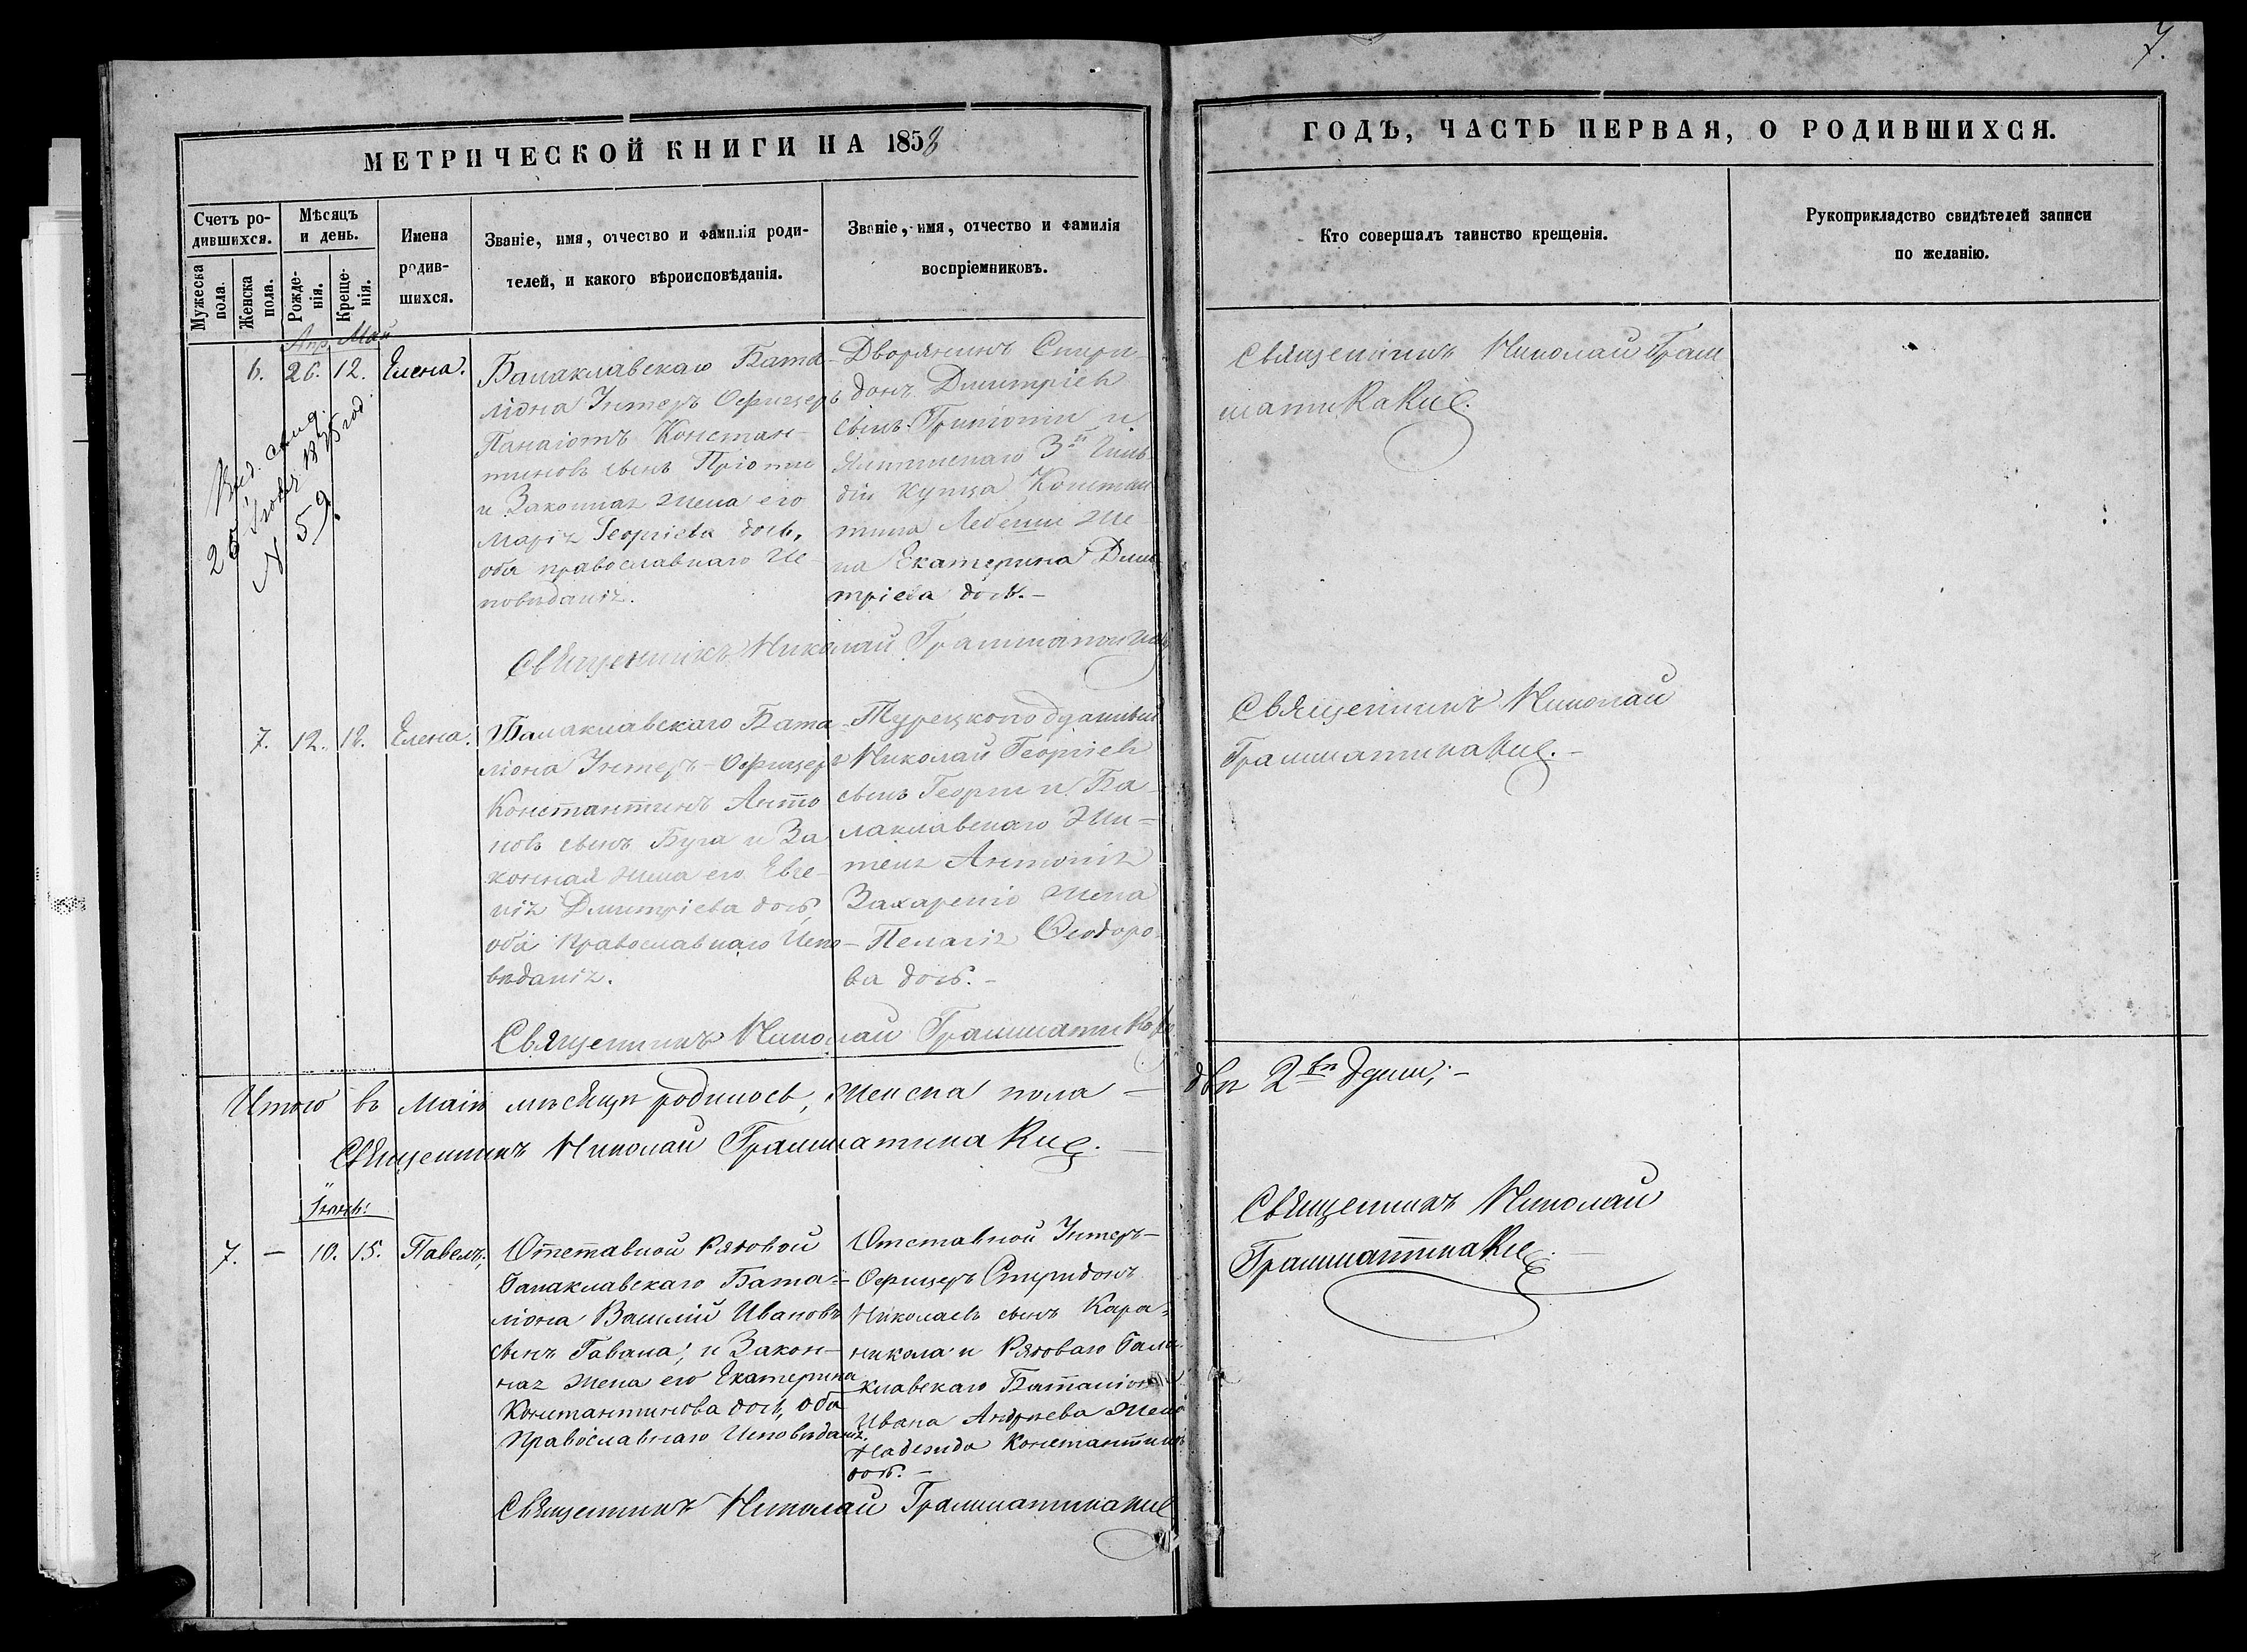 7.
МЕТРИЧЕСКОЙ КНИГИ НА 1858
ГОДЪ, ЧАСТЬ ПЕРВАЯ, О РОДИВШИХСЯ.
Счетъ ро-
дившихся.
Мужеска
пола.
Женска
пола.
Мѣсяцъ
и день.
Рожде-
нія.
Креще-
нія.
Имена
родив-
шихся.
Званіе, имя, отчество и фамилія роди-
телей, и какого вѣроисповѣданія.
Званіе, имя, отчество и фамилія
воспріемниковъ.
Кто совершалъ таинство крещенія.
Рукоприкладство свидѣтелей записи
по желанію.
Апр. Май
6. 26. 12. Елена.
Балаклавскаго Бата-
ліона Унтеръ Офицеръ
Панаіотъ Констан-
тиновъ сынъ
и Законная жена его
Марія Георгіева дочь,
оба православнаго Ис-
повѣданія.
Дворянинъ Спири-
донъ Дмитріевъ
сынъ и
Ялтинскаго 3й Гиль-
діи купца Констан-
тина же-
на Екатерина Дми-
тріева дочь.-
Священникъ Николай Грам
матикаки.
N 59
Священникъ Николай
7. 12. 12. Елена.
Балаклавскаго Бата-
ліона Унтеръ-Офицеръ
Константинъ Анто
новъ сынъ и За
конная жена его Евге-
нія Дмитріева дочь,
оба Православнаго Испо-
вѣданія.
Николай Георгіевъ
сынъ Георги и Ба-
лаклавскаго Жи-
теля Антонія
жена
Пелагія Ѳеодоро-
ва дочь.-
Священникъ Николай
Грамматикаки.-
Священникъ Николай
Итого въ Маіѣ мѣсяцѣ родилось, Женска пола - двѣ 2вѣ души;-
Священникъ Николай Грамматикаки.
Іюнь:
7. - 10. 15. Павелъ,
Отставной Рядовой
Балаклавскаго Бата-
ліона Василій Ивановъ
сынъ и Закон-
ная жена его Екатерина
Константинова дочь, оба
Православнаго Исповѣданія.
Отставной Унтеръ-
Офицеръ Спиридонъ
Николаевъ сынъ Кара-
никола и Рядоваго Бала-
клавскаго Баталіона
Ивана Андреева жена
Надежда Константинова
дочь.-
Священникъ Николай
Грамматикаки.
Священникъ Николай Грамматикаки